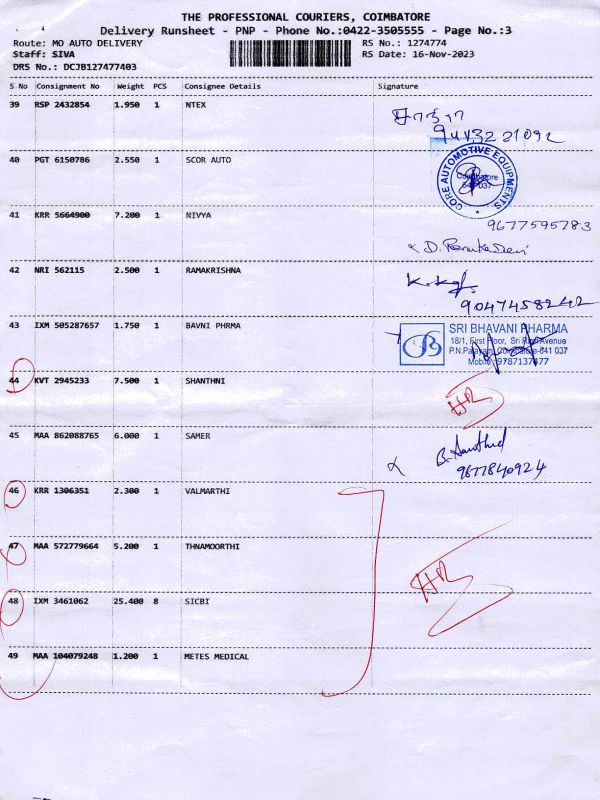 THE PROFESSIONAL COURIERS, COIMBATORE
Delivery Runsheet - PNP - Phone No.:0422-3505555 - Page No.:3
Route: MO AUTO DELIVERY RS No.: 1274774
Staff: SIVA RS Date: 16-Nov-2023
DRS No.: DCJB127477403
S No Consignment No Weight PCS Consignee Details Signature
39 RSP 2432854 1.950 1 NTEX
40 PGT 6150786 2.550 1 SCOR AUTO
CORE AUTOMOTIVE EQUIPMENTS
Coimbatore
641 037
9677595783
41 KRR 5664900 7.200 1 NIVYA
D. Renuka Devi
42 NRI 562115 2.500 1 RAMAKRISHNA
9047458242
43 IXM 505287657 1.750 1 BAVNI PHRMA
SRI BHAVANI PHARMA
18/1, First Floor, Sri Ram Avenue
P.N.Palayam, Coimbatore-641 037
Mobile: 9787137477
44 KVT 2945233 7.500 1 SHANTHNI
HR
45 MAA 862088765 6.000 1 SAMER
9677840924
46 KRR 1306351 2.300 1 VALMARTHI
47 MAA 572779664 5.200 1 THNAMOORTHI
HR
48 IXM 3461062 25.400 8 SICBI
49 MAA 104079248 1.200 1 METES MEDICAL